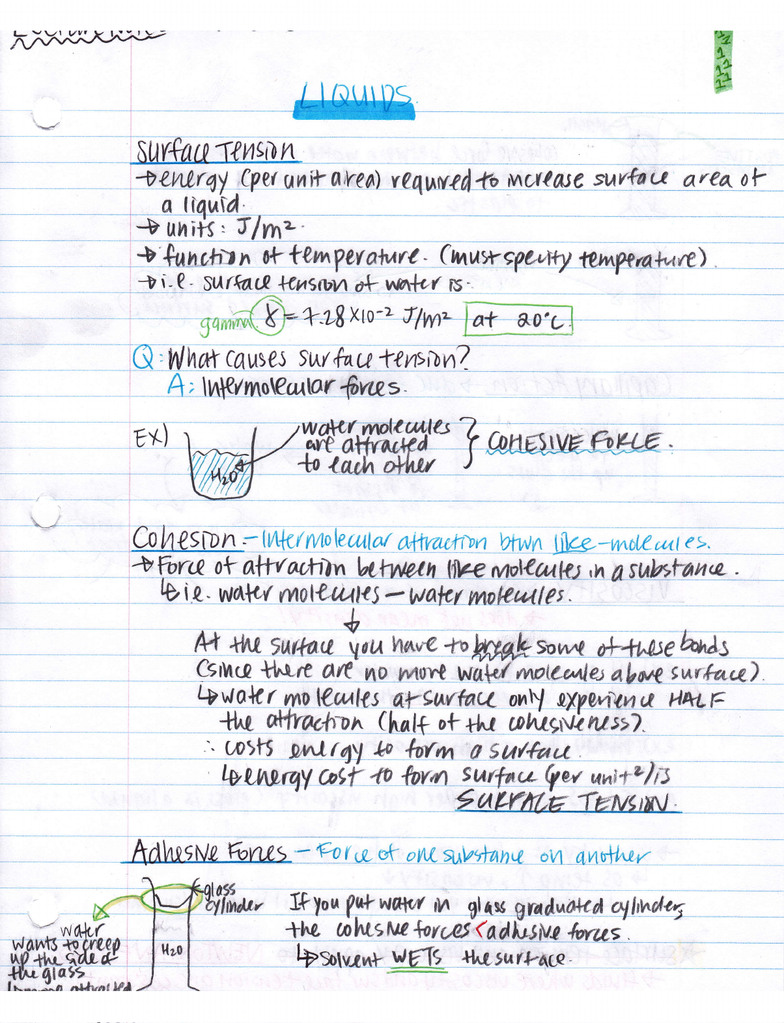 LIQUIDS.
Surface Tension
→ energy (per unit area) required to increase surface area of
a liquid.
→ units: J/m².
→ function of temperature. (must specify temperature).
→ i.e. surface tension of water is.
gamma γ = 7.28 x 10-2 J/m² at 20°C.
Q: What causes surface tension?
A: Intermolecular forces.
EX) water molecules
are attracted
to each other } COHESIVE FORCE.
H2O
Cohesion. - Intermolecular attraction btwn like-molecules.
→ Force of attraction between like molecules in a substance.
↳ i.e. water molecules - water molecules.
↓
At the surface you have to break some of these bonds
(since there are no more water molecules above surface).
↳ water molecules at surface only experience HALF
the attraction (half of the cohesiveness).
∴ costs energy to form a surface.
↳ energy cost to form surface (per unit²) is
SURFACE TENSION.
Adhesive Forces - Force of one substance on another
glass
cylinder
H2O
water
wants to creep
up the side of
the glass
If you put water in glass graduated cylinder,
the cohesive forces < adhesive forces.
↳ Solvent WETS the surface.